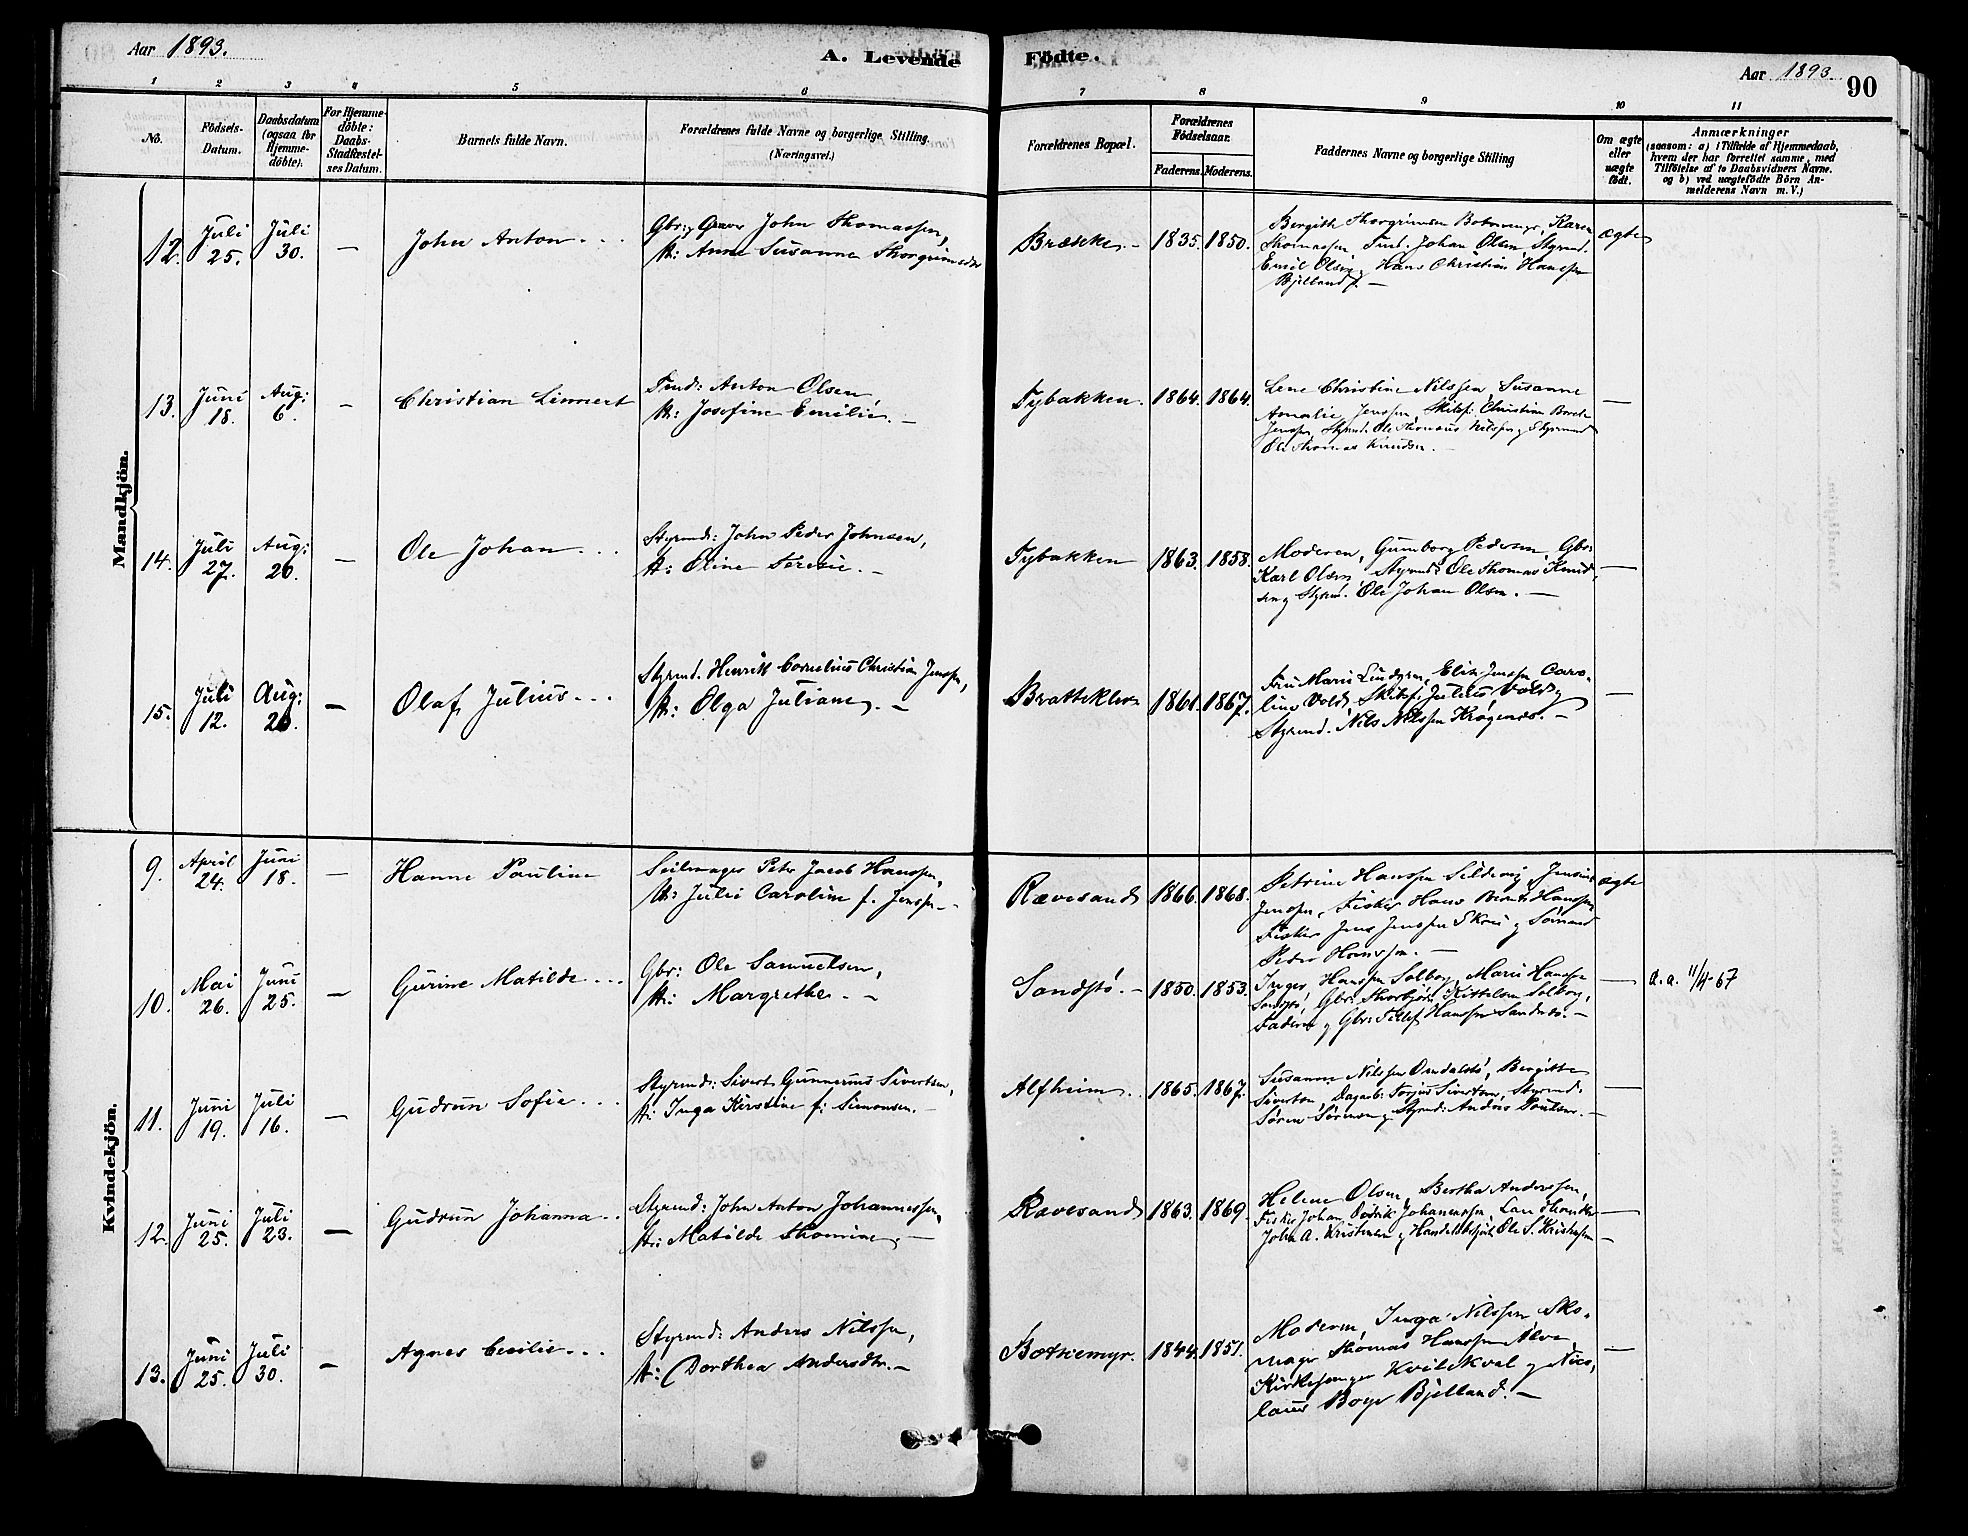 Aar 1893.
A. Levende Födte.
Aar 1893.
90
1 2 3 4 5 6 7 8 9 10 11
No.
Födsels-
Datum.
Daabsdatum
(ogsaa for
Hjemme-
döbte).
For Hjemme-
döbte:
Daabs-
Stadfæstel-
ses Datum.
Barnets fulde Navn.
Forældrenes fulde Navne og borgerlige Stilling.
(Næringsvei.)
Forældrenes Bopæl.
Forældrenes
Födselsaar.
Faderens. Moderens.
Faddernes Navne og borgerlige Stilling
Om ægte
eller
uægte
födt.
Anmærkninger
(saasom: a) i Tilfælde af Hjemmedaab,
hvem der har forrettet samme, med
Tilföielse af to Daabsvidners Navne.
og b) ved uægtefödte Börn An-
melderens Navn m. V.)
Mandkjön.
12. Juli 25. Juli 30. — John Anton
Gbr: John Thomassen,
H: Anne Susanne
1835. 1850.
Karen
Thomassen, Johan Olsen Styrmd.
Emil Olsen, Hans Christian Hanssen
Bjelland. —
ægte
13. Juni 18. Aug: 6. — Christian Linnert
Tmd: Anton Olsen,
H: Josefine Emilie. —
Tybakken. 1864. 1864.
Lene Christine Nilssen, Susanne
Amalie Jenssen, Skibsf: Christian
Jenssen, Styrmd. Ole Thomas Nilssen, Styrmand
Ole Thomas Knudsen. —
—
14. Juli 27. Aug: 20. — Ole Johan
Styrmd: John Peder Johnsen,
H: Eline Teresie. —
Tybakken 1863. 1858.
Moderen, Gunborg Pedersen, Gbr:
Karl Olsen, Styrmd: Ole Thomas Knud-
sen, Styrmd. Ole Johan Olsen. —
—
15. Juli 12. Aug: 20. — Olaf Julius
Styrmd. Henrik Cornelius Christian Jenssen,
H: Olga Juliane. —
Bratteklev 1861. 1867.
Fru Marie Lindgren, Elise Jenssen, Caro-
line Vold, Skibsf: Julius Vold,
Styrmd. Nils Nilssen Krøgenes. —
—
Kvindekjön.
9. April 24. Juni 18. — Hanne Pauline
Seilmager Peter Jacob Hanssen,
H: Julie Caroline f. Jenssen
Rævesand 1866. 1868.
Petrine Hanssen
Jenssen, Fisker Hans Hanssen,
Fisker Jens Jenssen
Peder Hanssen. —
ægte
10. Mai 26. Juni 25. — Gurine Matilde
Gbr: Ole Samuelsen,
H: Margrethe. —
Sandstø. — 1850. 1853.
Inger Hanssen Solborg, Marie Hanssen
Sandstø, Gbr: Thorbjørn Kittelsen Solborg,
Faderen, Gbr: Hanssen Sandnes. —
— d. a. 11/4-67
11. Juni 19. Juli 16. — Gudrun Sofie
Styrmd: Sivert Gunnerius Sivertsen,
H: Inga Kirstine f: Simonsen. —
Alfheim 1865. 1867.
Susanne Nilssen Omdalstø, Bergitte
Sivertsen, Dagarb: Torjus Sivertsen, Styrmd:
Søren Sørensen, Styrmd: Anders Poulsen. —
—
12. Juni 25. Juli 23. — Gudrun Johanna
Styrmd: John Anton Johannessen,
H: Matilde Thomine. —
Rævesand 1863. 1869.
Helene Olsen, Bertha Anderssen,
Fisker Johan Didrik Johannessen,
John A. Kristensen, Ole S. Kristensen —
—
13. Juni 25. Juli 30. — Agnes Cecilie
Styrmd: Anders Nilssen,
H: Dorthea Andersdtr. —
1844. 1851.
Moderen, Inga Nilssen, Sko-
mager Thomas Hanssen Alve,
Kirkesanger Kvilekval, Nico-
laus Boye Bjelland. —
—